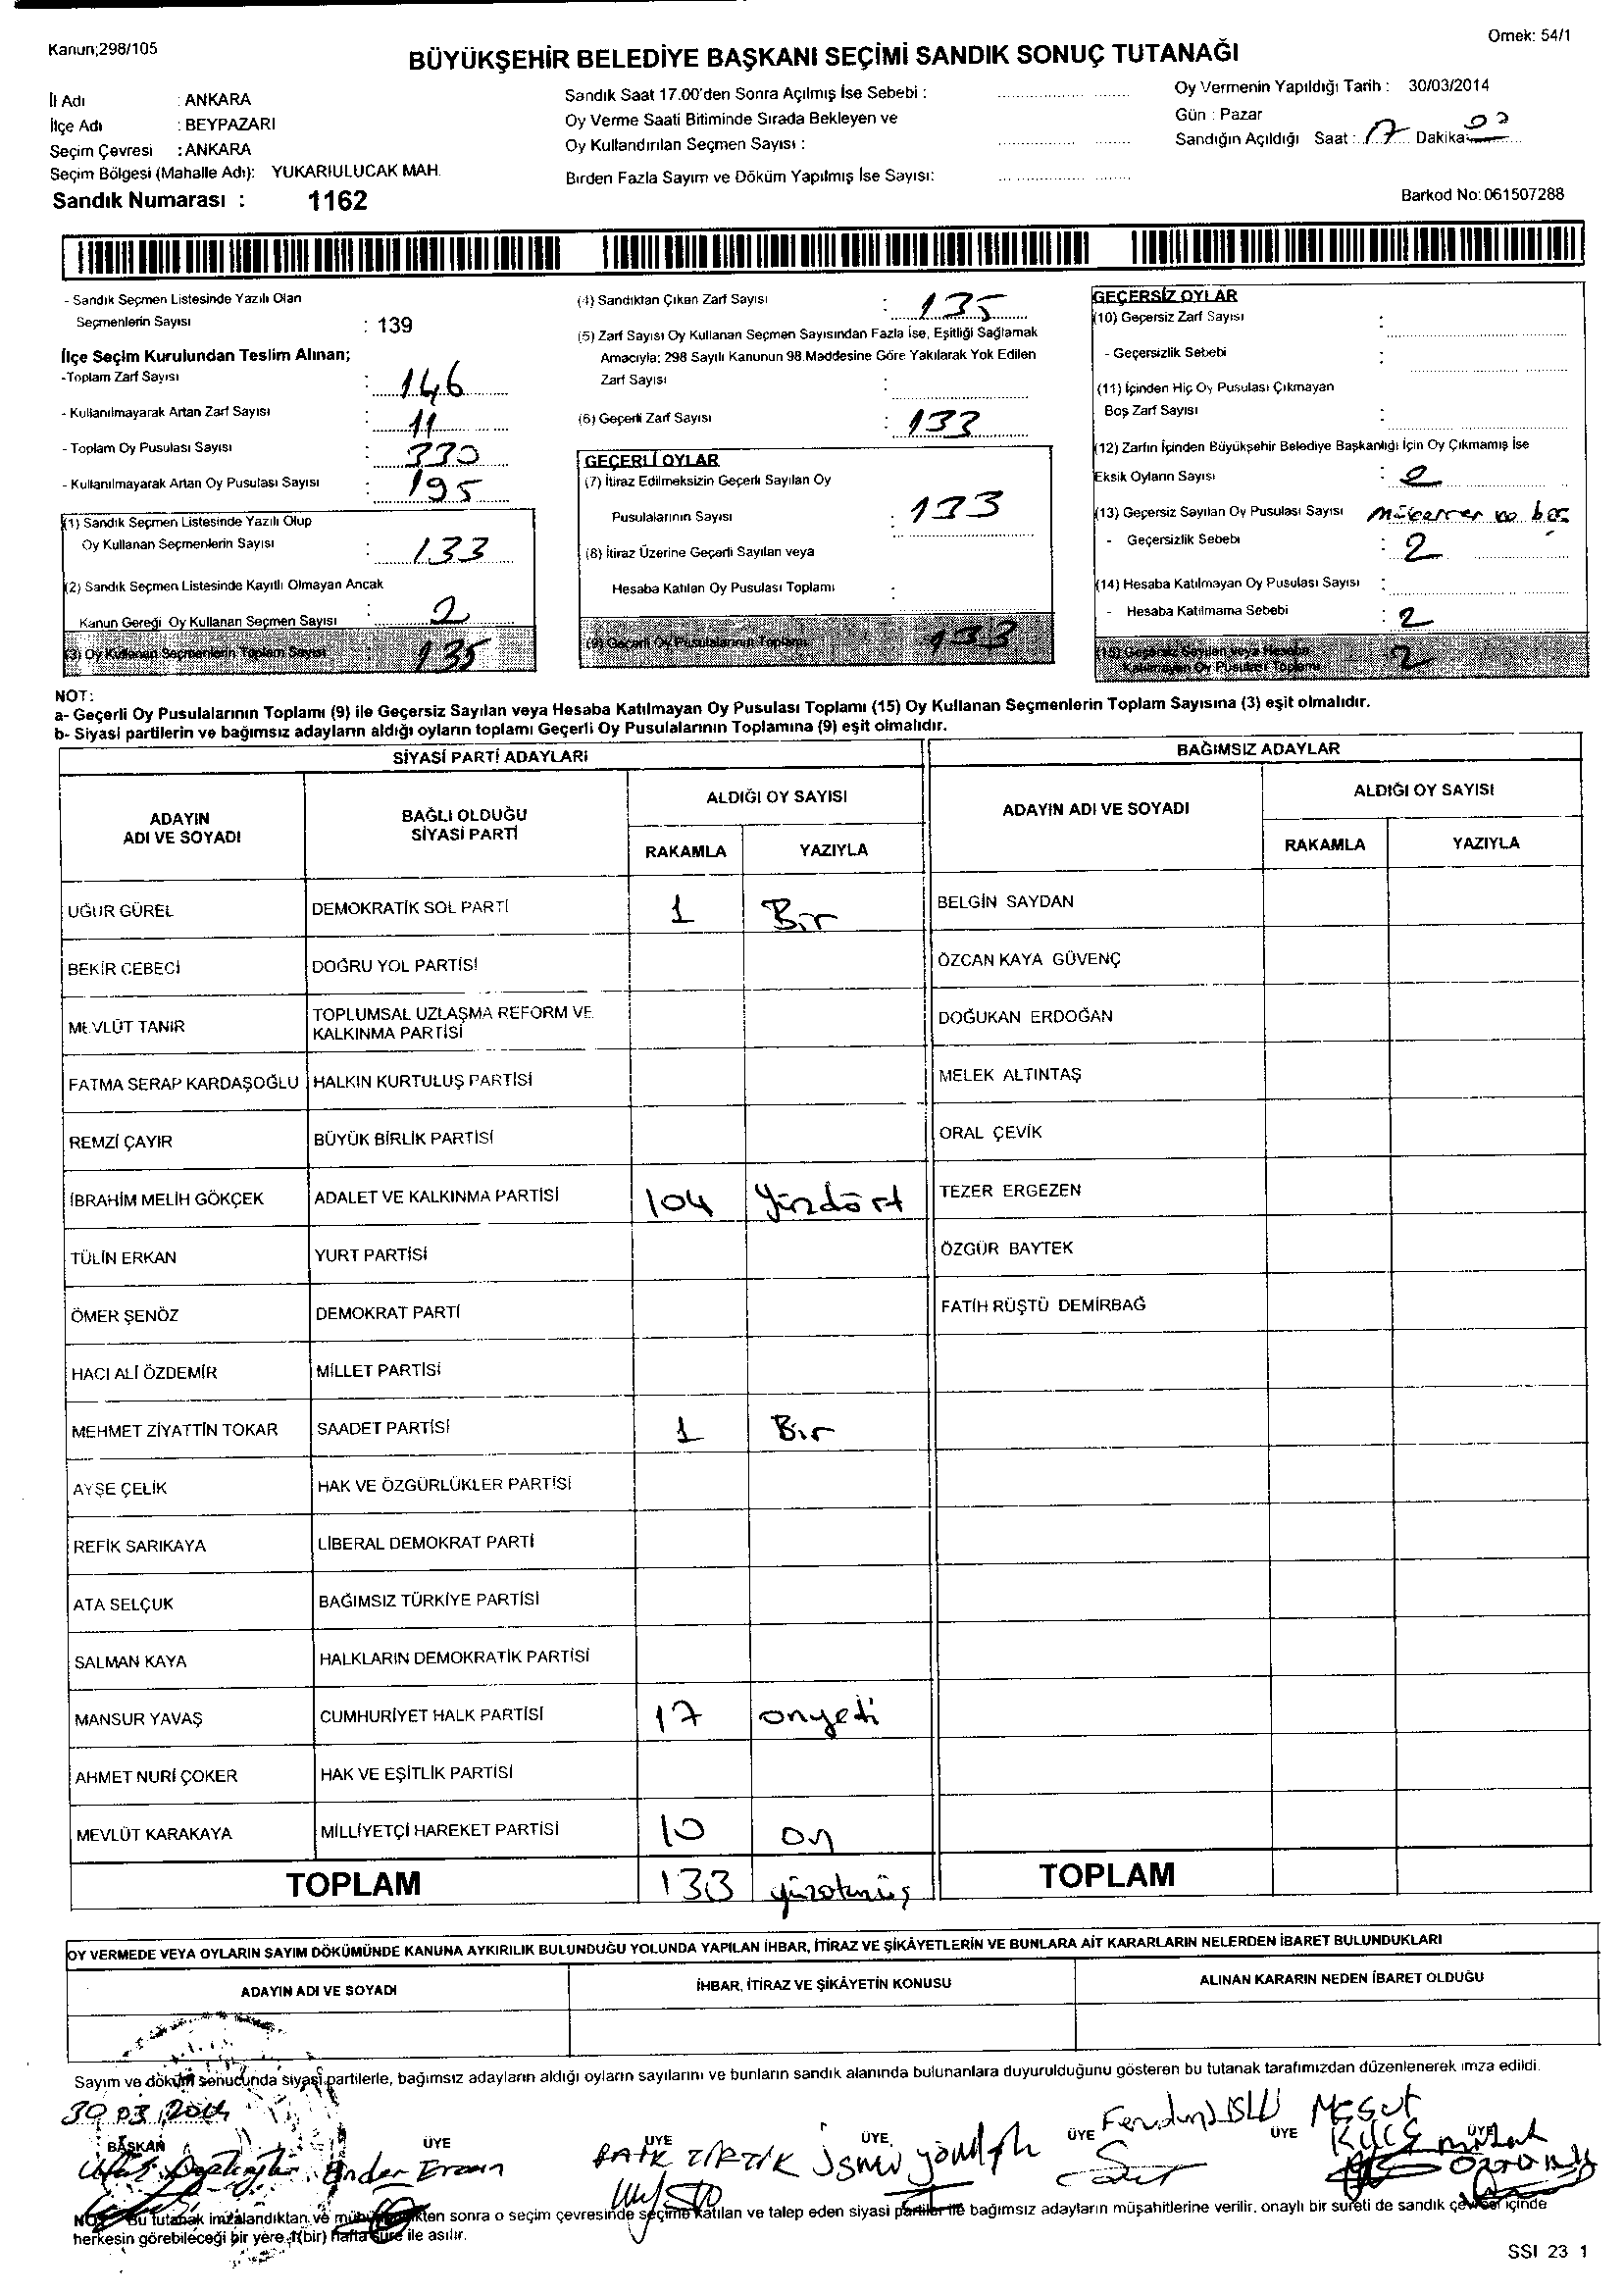 Kanun;298/105
Örnek: 54/1
BÜYÜKŞEHİR BELEDİYE BAŞKANI SEÇİMİ SANDIK SONUÇ TUTANAĞI
İl Adı : ANKARA
İlçe Adı : BEYPAZARI
Seçim Çevresi : ANKARA
Seçim Bölgesi (Mahalle Adı): YUKARIULUCAK MAH.
Sandık Numarası : 1162
Sandık Saat 17.00'den Sonra Açılmış İse Sebebi :
Oy Verme Saati Bitiminde Sırada Bekleyen ve
Oy Kullandırılan Seçmen Sayısı :
Birden Fazla Sayım ve Döküm Yapılmış İse Sayısı:
Oy Vermenin Yapıldığı Tarih : 30/03/2014
Gün : Pazar
Sandığın Açıldığı Saat : 17 Dakika: 00
Barkod No: 061507288
- Sandık Seçmen Listesinde Yazılı Olan
Seçmenlerin Sayısı : 139
İlçe Seçim Kurulundan Teslim Alınan;
-Toplam Zarf Sayısı : 146
- Kullanılmayarak Artan Zarf Sayısı : 11
- Toplam Oy Pusulası Sayısı : 330
- Kullanılmayarak Artan Oy Pusulası Sayısı : 195
(1) Sandık Seçmen Listesinde Yazılı Olup
Oy Kullanan Seçmenlerin Sayısı : 133
(2) Sandık Seçmen Listesinde Kayıtlı Olmayan Ancak
Kanun Gereği Oy Kullanan Seçmen Sayısı : 2
(3) Oy Kullanan Seçmenlerin Toplam Sayısı : 135
(4) Sandıktan Çıkan Zarf Sayısı : 135
(5) Zarf Sayısı Oy Kullanan Seçmen Sayısından Fazla İse, Eşitliği Sağlamak
Amacıyla; 298 Sayılı Kanunun 98.Maddesine Göre Yakılarak Yok Edilen
Zarf Sayısı :
(6) Geçerli Zarf Sayısı : 133
GEÇERLİ OYLAR
(7) İtiraz Edilmeksizin Geçerli Sayılan Oy
Pusulalarının Sayısı : 133
(8) İtiraz Üzerine Geçerli Sayılan veya
Hesaba Katılan Oy Pusulası Toplamı :
(9) Geçerli Oy Pusulalarının Toplamı 133
GEÇERSİZ OYLAR
(10) Geçersiz Zarf Sayısı :
- Geçersizlik Sebebi :
(11) İçinden Hiç Oy Pusulası Çıkmayan
Boş Zarf Sayısı :
(12) Zarfın İçinden Büyükşehir Belediye Başkanlığı İçin Oy Çıkmamış İse
Eksik Oyların Sayısı :
(13) Geçersiz Sayılan Oy Pusulası Sayısı
- Geçersizlik Sebebi : 2
(14) Hesaba Katılmayan Oy Pusulası Sayısı :
- Hesaba Katılmama Sebebi : 2
(15) Geçersiz Sayılan veya Hesaba
Katılmayan Oy Pusulası Toplamı 2
NOT:
a- Geçerli Oy Pusulalarının Toplamı (9) ile Geçersiz Sayılan veya Hesaba Katılmayan Oy Pusulası Toplamı (15) Oy Kullanan Seçmenlerin Toplam Sayısına (3) eşit olmalıdır.
b- Siyasi partilerin ve bağımsız adayların aldığı oyların toplamı Geçerli Oy Pusulalarının Toplamına (9) eşit olmalıdır.
SİYASİ PARTİ ADAYLARI
ADAYIN ADI VE SOYADI
BAĞLI OLDUĞU SİYASİ PARTİ
ALDIĞI OY SAYISI
RAKAMLA YAZIYLA
UĞUR GÜREL DEMOKRATİK SOL PARTİ 1 Bir
BEKİR CEBECİ DOĞRU YOL PARTİSİ
MEVLÜT TANIR TOPLUMSAL UZLAŞMA REFORM VE
KALKINMA PARTİSİ
FATMA SERAP KARDAŞOĞLU HALKIN KURTULUŞ PARTİSİ
REMZİ ÇAYIR BÜYÜK BİRLİK PARTİSİ
İBRAHİM MELİH GÖKÇEK ADALET VE KALKINMA PARTİSİ 104 Yüzdört
TÜLİN ERKAN YURT PARTİSİ
ÖMER ŞENÖZ DEMOKRAT PARTİ
HACI ALİ ÖZDEMİR MİLLET PARTİSİ
MEHMET ZİYATTİN TOKAR SAADET PARTİSİ 1 Bir
AYŞE ÇELİK HAK VE ÖZGÜRLÜKLER PARTİSİ
REFİK SARIKAYA LİBERAL DEMOKRAT PARTİ
ATA SELÇUK BAĞIMSIZ TÜRKİYE PARTİSİ
SALMAN KAYA HALKLARIN DEMOKRATİK PARTİSİ
MANSUR YAVAŞ CUMHURİYET HALK PARTİSİ 17 onyedi
AHMET NURİ ÇOKER HAK VE EŞİTLİK PARTİSİ
MEVLÜT KARAKAYA MİLLİYETÇİ HAREKET PARTİSİ 10 on
TOPLAM 133
BAĞIMSIZ ADAYLAR
ADAYIN ADI VE SOYADI
ALDIĞI OY SAYISI
RAKAMLA YAZIYLA
BELGİN SAYDAN
ÖZCAN KAYA GÜVENÇ
DOĞUKAN ERDOĞAN
MELEK ALTINTAŞ
ORAL ÇEVİK
TEZER ERGEZEN
ÖZGÜR BAYTEK
FATİH RÜŞTÜ DEMİRBAĞ
TOPLAM
OY VERMEDE VEYA OYLARIN SAYIM DÖKÜMÜNDE KANUNA AYKIRILIK BULUNDUĞU YOLUNDA YAPILAN İHBAR, İTİRAZ VE ŞİKÂYETLERİN VE BUNLARA AİT KARARLARIN NELERDEN İBARET BULUNDUKLARI
ADAYIN ADI VE SOYADI
İHBAR, İTİRAZ VE ŞİKÂYETİN KONUSU
ALINAN KARARIN NEDEN İBARET OLDUĞU
Sayım ve döküm sonucunda siyasi partilerle, bağımsız adayların aldığı oyların sayılarını ve bunların sandık alanında bulunanlara duyurulduğunu gösteren bu tutanak tarafımızdan düzenlenerek imza edildi.
30 03 2014
BAŞKAN ÜYE ÜYE ÜYE ÜYE ÜYE ÜYE
Mesut
KILIÇ
NOT: Bu tutanak imzalandıktan ve mühürlendikten sonra o seçim çevresinde seçime katılan ve talep eden siyasi partiler ile bağımsız adayların müşahitlerine verilir, onaylı bir sureti de sandık çevresi içinde
herkesin görebileceği bir yere 1(bir) hafta süre ile asılır.
SSI 23 1